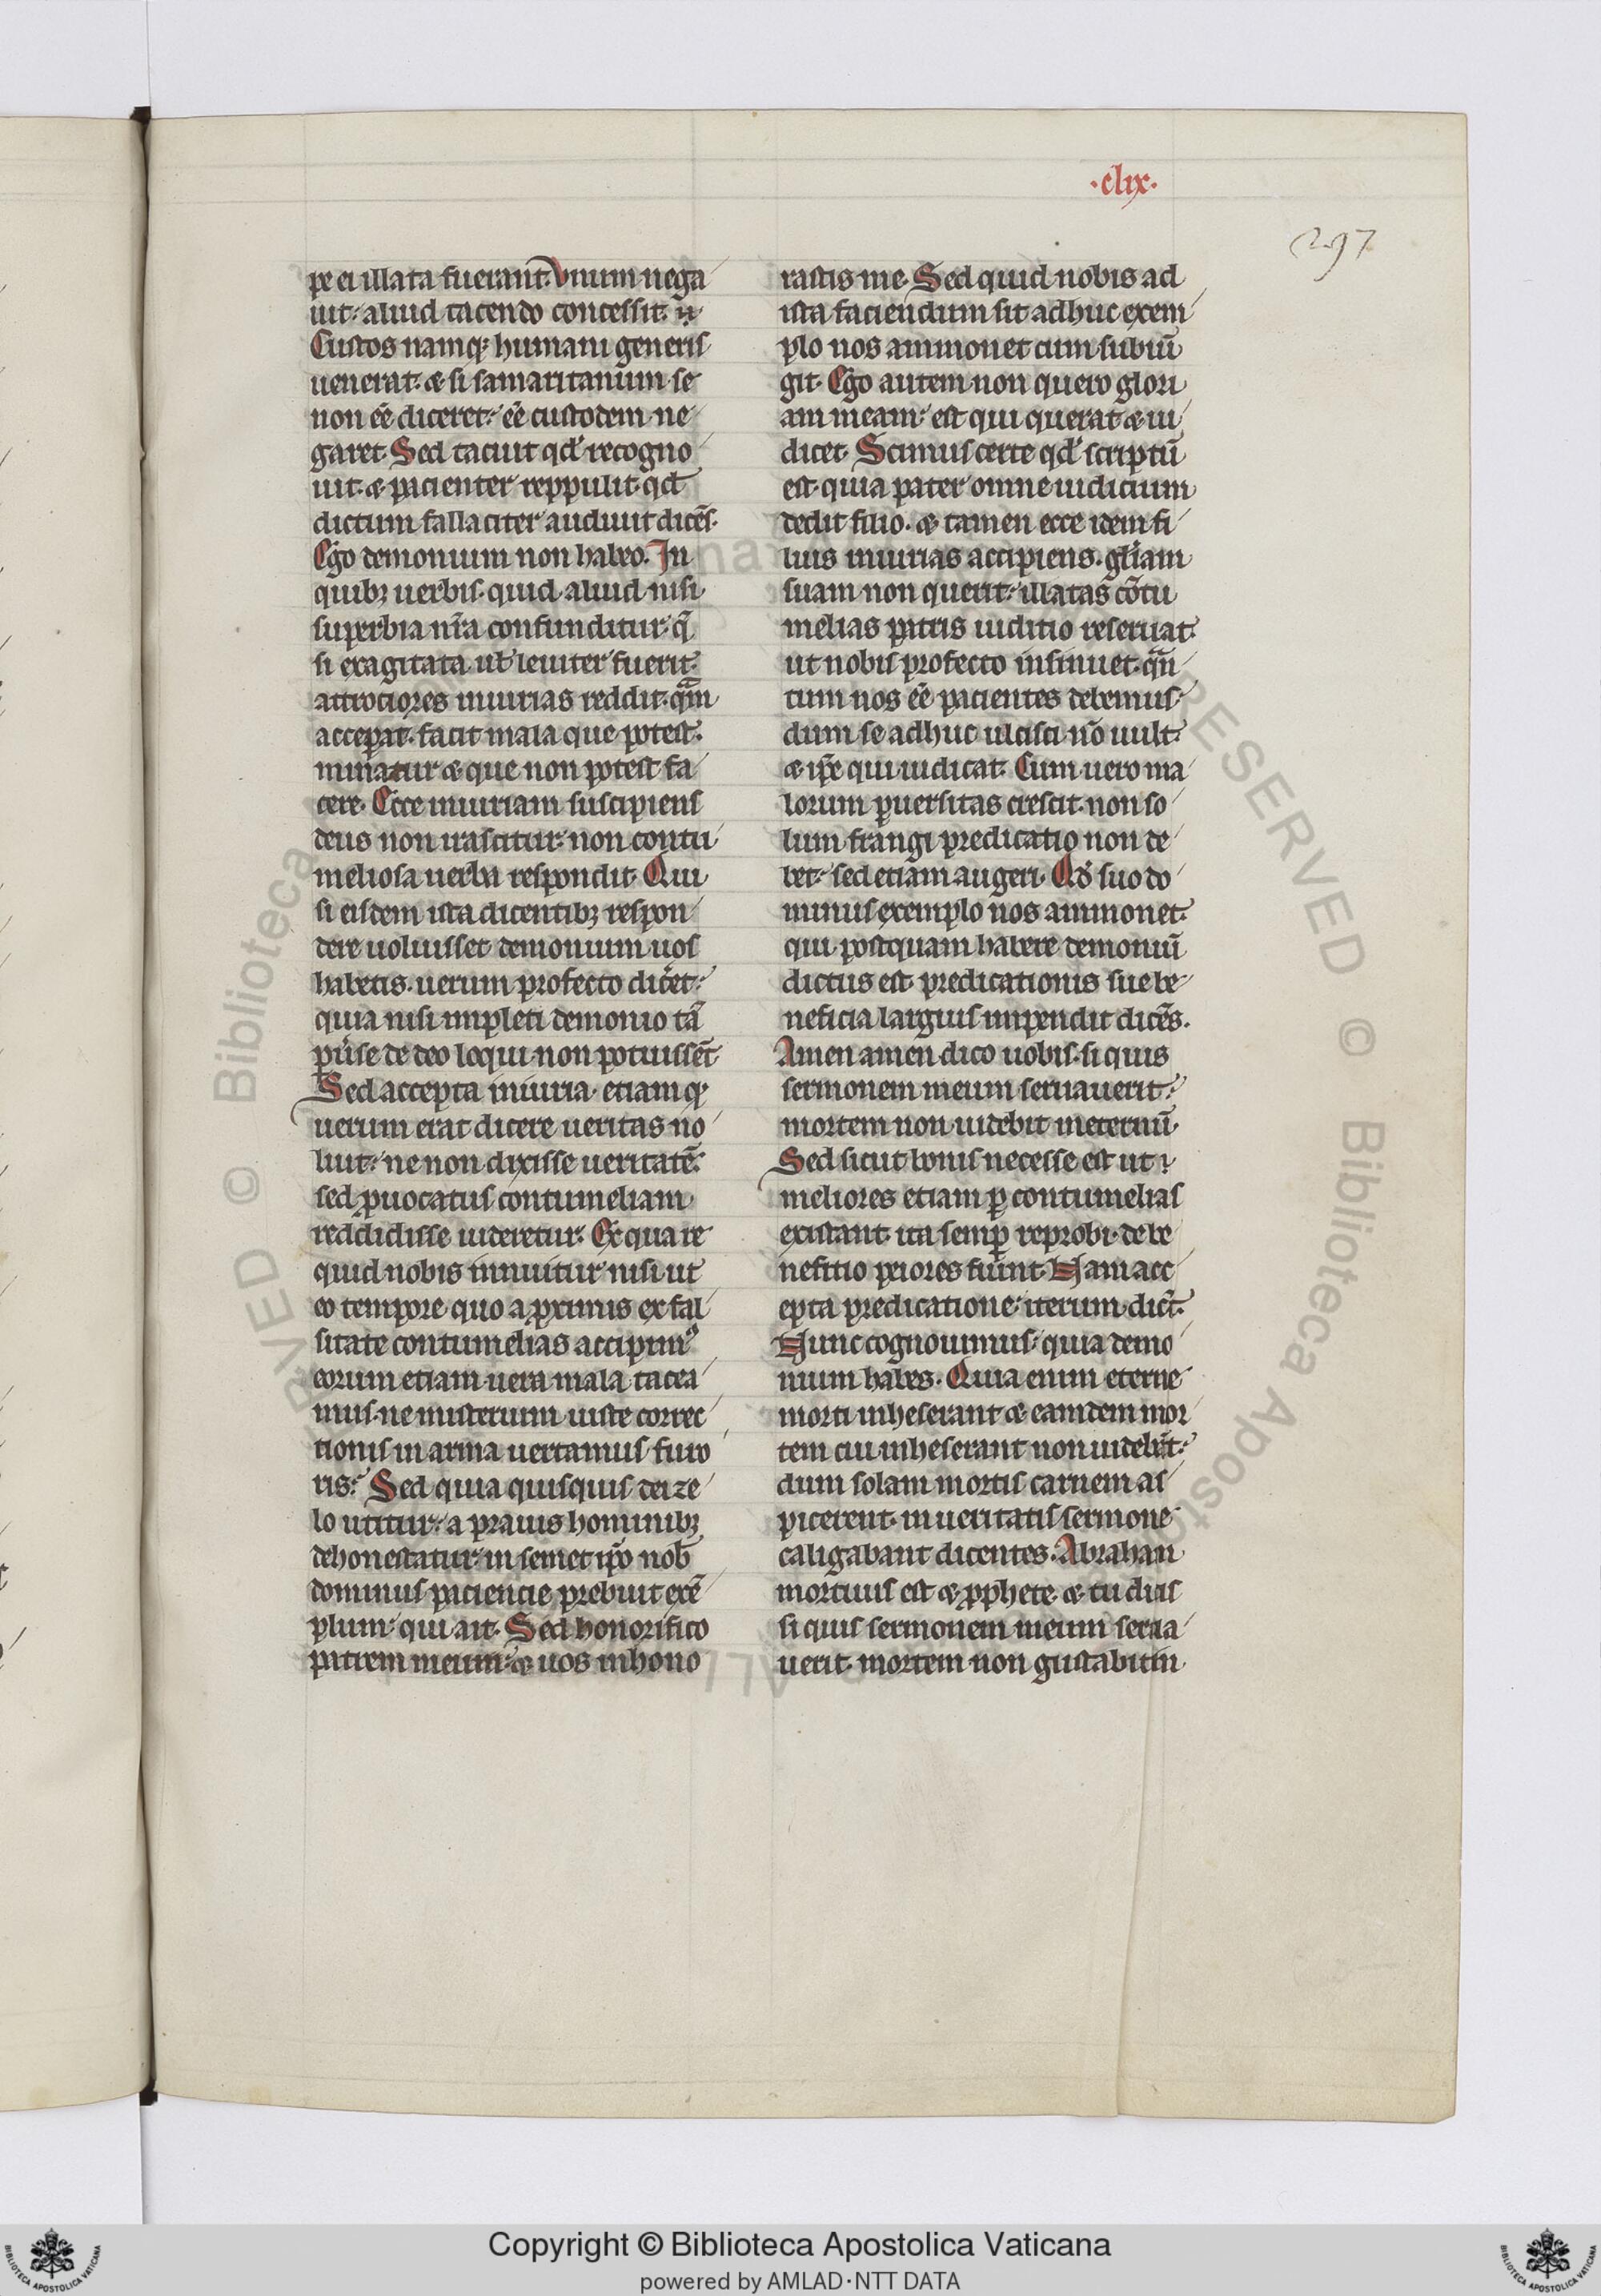 ·clix·
297
pe ei illata fuerant. Vnum nega
uit. aliud tacendo concessit.
Custos namq; humani generis
uenerat. & si samaritanum se
non eē diceret. eē custodem ne
garet. Sed tacuit qd' recogno
uit. & pacienter reppulit. qd
dictum fallaciter audiuit dicēs.
Ego demonium non habeo. In
quib; uerbis. quid aliud nisi
superbia nr̄a confunditur. q̄
si exagitata ul' leuiter fuerit.
atrociores iniurias reddit. qȧm
acceperat. facit mala que potest.
minatur & que non potest fa
cere. Ecce iniuriam suscipiens
deus non irascitur. non contu
meliosa uerba respondit. Qui
si eisdem ista dicentib; respon
dere uoluisset demonium uos
habetis. uerum profecto dicēt.
quia nisi impleti demonio tā
p̱uerse de deo loqui non potuissēt
Sed accepta iniuria. etiam q
uerum erat dicere ueritas no
luit. ne non dixisse ueritatē.
sed ꝓuocatus contumeliam
reddidisse uideretur. Ex qua re
quid nobis innuitur nisi ut
eo tempore quo a ꝓximis ex fal
sitate contumelias accipim⁹
eorum etiam uera mala tacea
mus. ne misterium iuste correc
tionis in arma uertamus furo
ris. Sed quia quisquis dei ze
lo utitur. a prauis hominib;
dehonestatur. in semet ip̄o nob̄
dominus paciencie prebuit exē
plum. qui ait. Sed honorifico
patrem meum. & uos inhono
rastis me. Sed quid nobis ad
ista faciendum sit adhuc exem
plo nos ammonet cum subiū
git. Ego autem non quero glori
am meam. est qui querat & iu
dicet. Scimus certe qd' scriptū
est. quia pater omne iudicium
dedit filio. & tamen ecce idem fi
lius iniurias accipiens. gl̄iam
suam non querit. illatas cōtu
melias patris iuditio reseruat.
ut nobis profecto insinuet. qȧn
tum nos eē pacientes debemus.
dum se adhuc ulcisci nō uult.
& ip̄e qui iudicat. Cum uero ma
lorum ꝑuersitas crescit. non so
lum frangi predicatio non de
bet. sed etiam augeri. Qd' suo do
minus exemplo nos ammonet.
qui postquam habere demoniū
dictus est. predicationis sue be
neficia largius impendit dicēs.
Amen amen dico uobis. si quis
sermonem meum seruauerit.
mortem non uidebit ineternū.
Sed sicut bonis necesse est ut
meliores etiam ꝑ contumelias
existant. ita semꝑ reprobi. de be
nefitio peiores fiunt. Nam acc
epta predicatione. iterum dict̄.
Nunc cognouimus. quia demo
nium habes. Quia enim eterne
morti inheserant & eamdem mor
tem cui inheserant non uidebt̄.
dum solam mortis carnem as
picerent. in ueritatis sermone
caligabant dicentes. Abraham
mortuus est & ꝓphete. & tu dicis
si quis sermonem meum serua
uerit. mortem non gustabit in
Copyright © Biblioteca Apostolica Vaticana
powered by AMLAD·NTT DATA